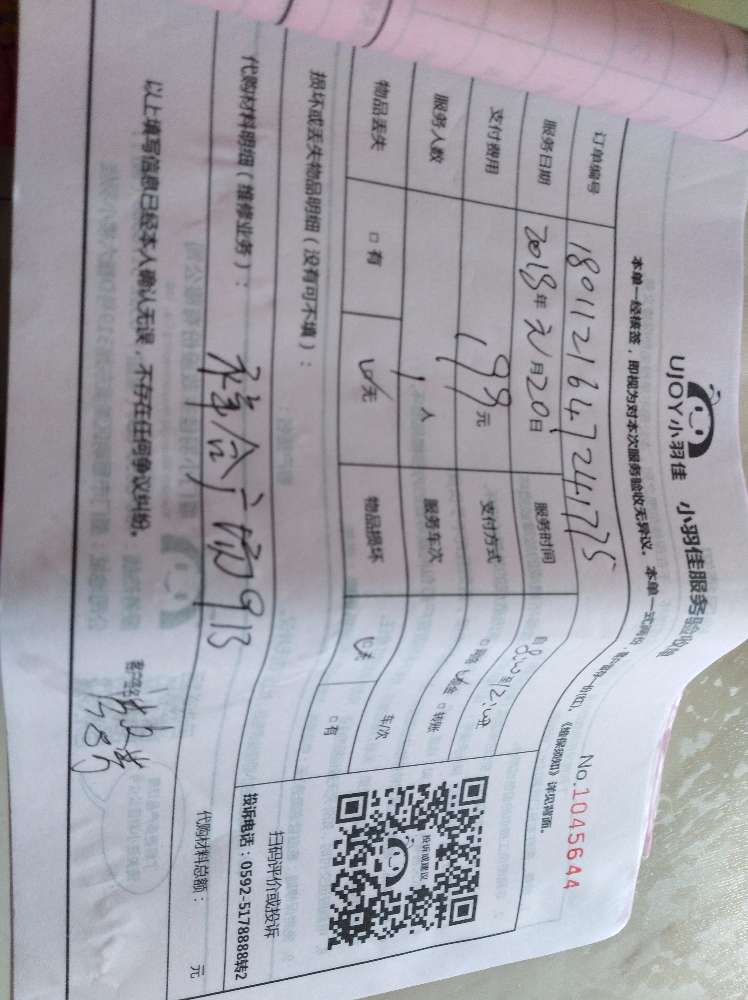 UJOY小羽佳 小羽佳服务验收单
No.1045644
本单一经核签，即视为对本次服务验收无异议。本单一式两份，《维保须知》详见背面。
订单编号 180112164724175
服务日期 2018年元月20日 服务时间
支付费用 199元 支付方式 现金 转账
服务人数 1人 服务车次 车/次
物品丢失 □有 ☑无 物品损坏 ☑无 □有
损坏或丢失物品明细（没有可不填）：
投诉或建议
扫码评价或投诉
投诉电话：0592-5178888转2
代购材料明细（维修业务）：
广场913
代购材料总额： 元
以上填写信息已经本人确认无误，不存在任何争议纠纷。 客户签名